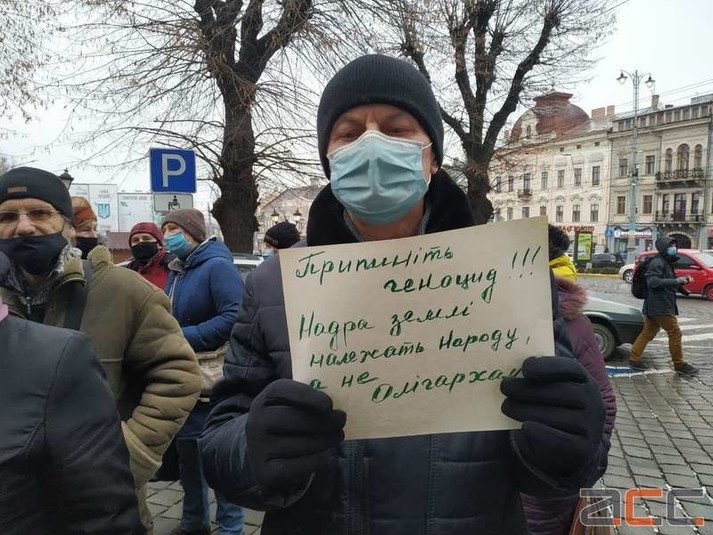 P
Припиніть
геноцид !!!
Надра землі
належать Народу,
а не
Олігархам
acc